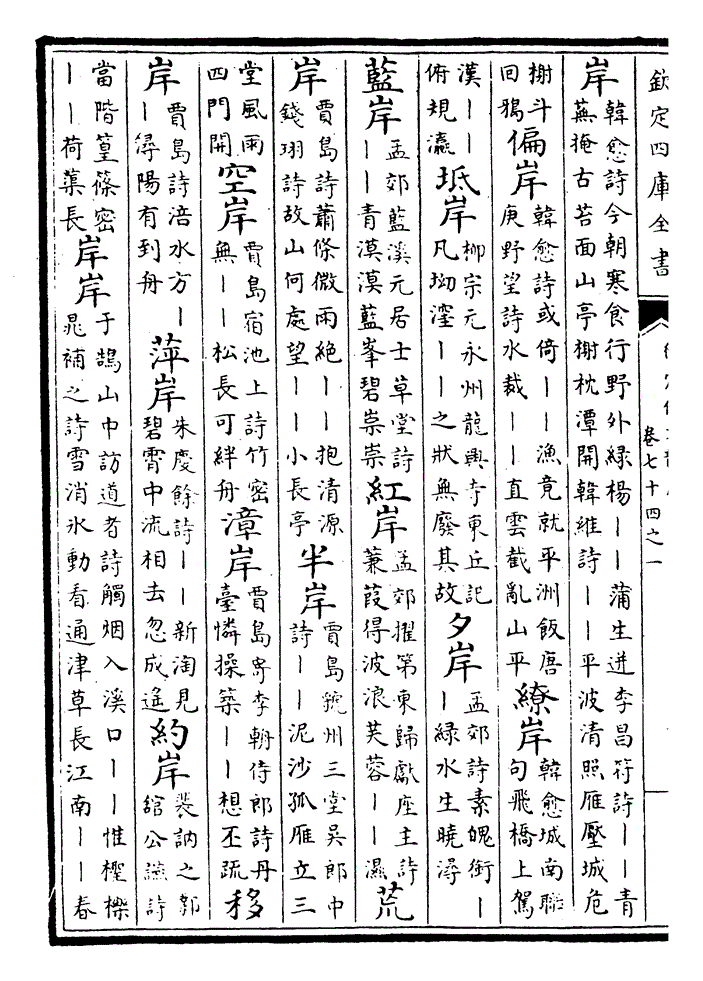 欽定四庫全書
卷七十四之一
岸韓愈詩今朝寒食行野外緑楊丨丨蒲生迸李昌符詩丨丨青蕪掩古苔面山亭榭枕潭開韓維詩丨丨平波清照雁壓城危
榭斗回鴉偏岸韓愈詩或倚丨丨漁竟就平洲飯唐庚野望詩水裁丨丨直雲截亂山平繚岸韓愈城南聯句飛橋上駕
漢丨丨俯規瀛坻岸柳宗元永州龍興寺東丘記凡坳窪丨丨之狀無廢其故夕岸孟郊詩素魄銜丨丨緑水生曉潯
藍岸孟郊藍溪元居士草堂詩丨丨青漠漠藍峯碧崇崇紅岸孟郊擢第東歸獻座主詩蒹葭得波浪芙蓉丨丨濕荒
岸賈島詩蕭條微雨絶丨丨抱清源錢珝詩故山何處望丨丨小長亭半岸賈島虢州三堂吳郎中詩丨丨泥沙孤雁立三
堂風雨四門開空岸賈島宿池上詩竹密無丨丨松長可絆舟漳岸賈島寄李輈侍郎詩丹臺憐操築丨丨想丕疏移
岸賈島詩涪水方丨丨潯陽有到舟萍岸朱慶餘詩丨丨新淘見碧霄中流相去忽成遥約岸裴訥之鄴館公讌詩
當階篁篠密丨丨荷蕖長岸岸于鵠山中訪道者詩觸烟入溪口丨丨惟檉櫟晁補之詩雪消氷動看通津草長江南丨丨春